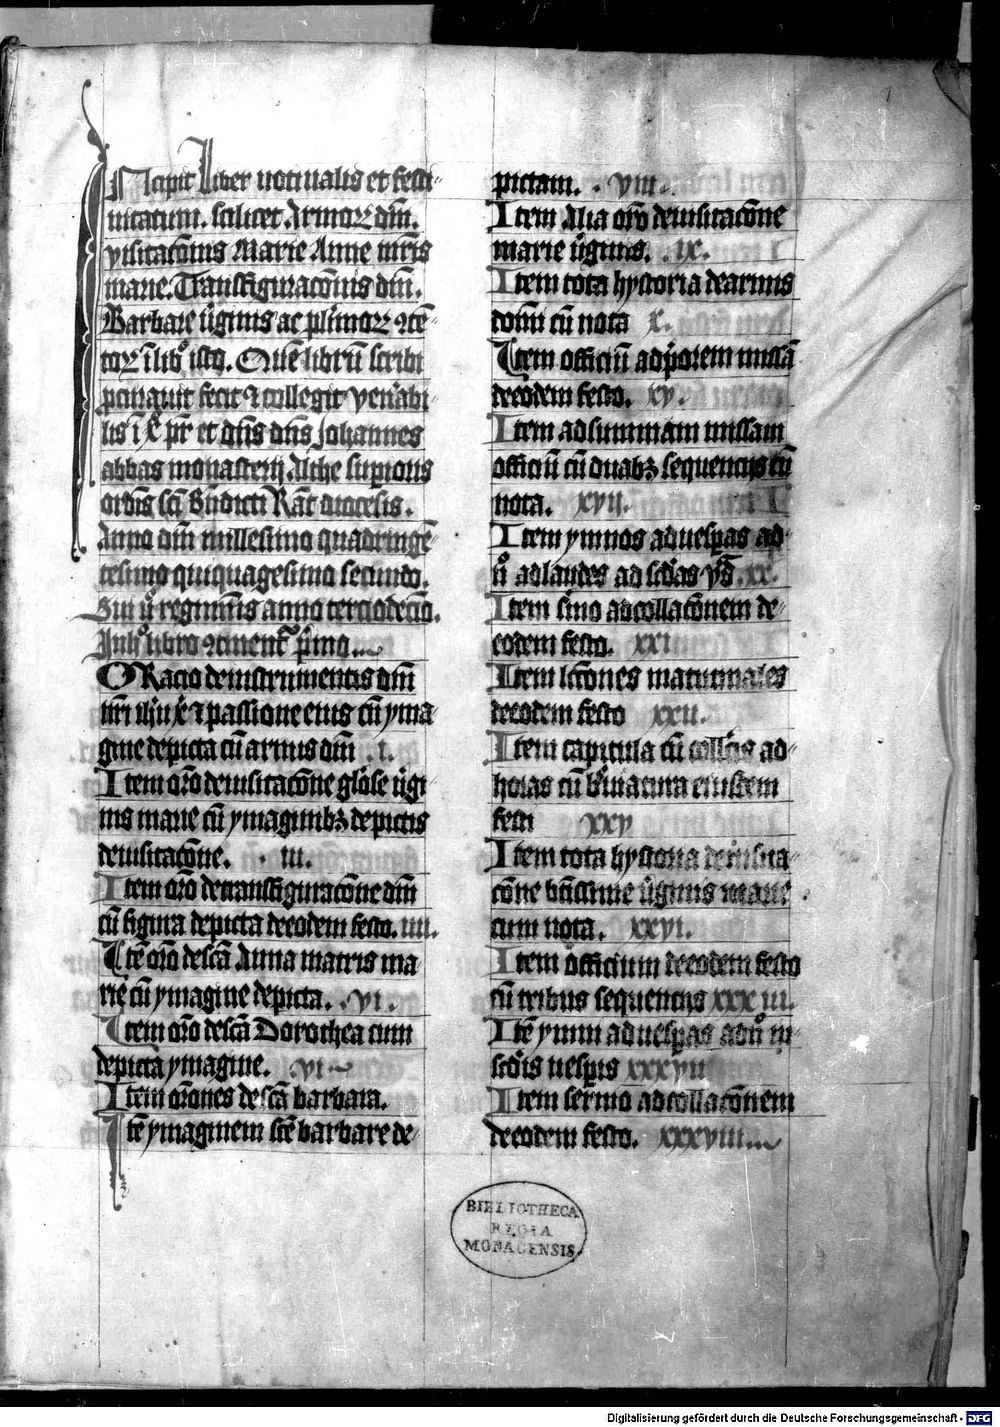 1
Incipit liber votiualis et festi-
uitatum. scilicet Armoꝝ dn̄i.
visitacōnis Marie Anne mr̄is
marie. Transfiguracōnis dn̄i.
Barbare v̄ginis ac pl̄imoꝝ ꝯtē-
toꝝ ī libº isto. Quē librū scribi
fecit ⁊ collegit ven̄abi-
lis ī xº pr̄ et dn̄s dn̄s Johannes
abbas monasterij Althe supioris
ordīs scī Bn̄dicti Rat̄ diocesis.
Anno dn̄i millesimo quadringē-
tesimo quiquagesimo secundo.
Sui vº regiminis anno terciodecīo.
libro ꝯtinent᷑ p̄imo
ORacio de instrumentis dn̄i
nr̄i ihū xp̄i ⁊ passione eius cū yma-
gine depicta cū armis dn̄i .i.
Item orō de visitacōne gl̄ose v̄gi-
nis marie cū ymaginibꝫ depictis
de visitacōne. . iii.
Item orō de transfiguracōne dn̄i
cū figura depicta de eodem festo. iiii.
Itē orō de scā Anna matris ma-
rie cū ymagine depicta. . vi .
Item orō de scā Dorothea cum
depicta ymagine. vi
Item orōnes de scā barbara.
Itē ymaginem scē barbare de-
pictam. . viii .
Item Alia orō de visitacōne
marie v̄ginis. .ix.
Item tota hystoria de armis
domī cū nota x.
Item officiū ad p̄orem missā
de eodem festo. xv.
Item ad summam missam
officiū cū duabꝫ sequencijs cū
nota. xvii.
Item ymnos ad uesp̄as ad
n̄ ad laudes ad scd̄as vp̄s .xx.
Item sʼmo ad collacōnem de-
eodem festo. xxi.
Item lc̄ōnes matutinales
de eodem festo xxii.
Item capitula cū coll̄cis ad-
horas cū bʼuiatura eiusdem
festi xxv
Item tota hystoria de visita-
cōne bt̄issime v̄ginis marie
cum nota. xxvi.
Item officium de eodem festo
cū tribus sequencijs xxxiii.
Itē ymni ad uesp̄as ad n̄ in-
scd̄is uesp̄is xxxvii
Item sermo ad collacōnem
de eodem festo. xxxviii
BIBLIOTHECA
REGIA
MONACENSIS.
Digitalisierung gefördert durch die Deutsche Forschungsgemeinschaft - DFG